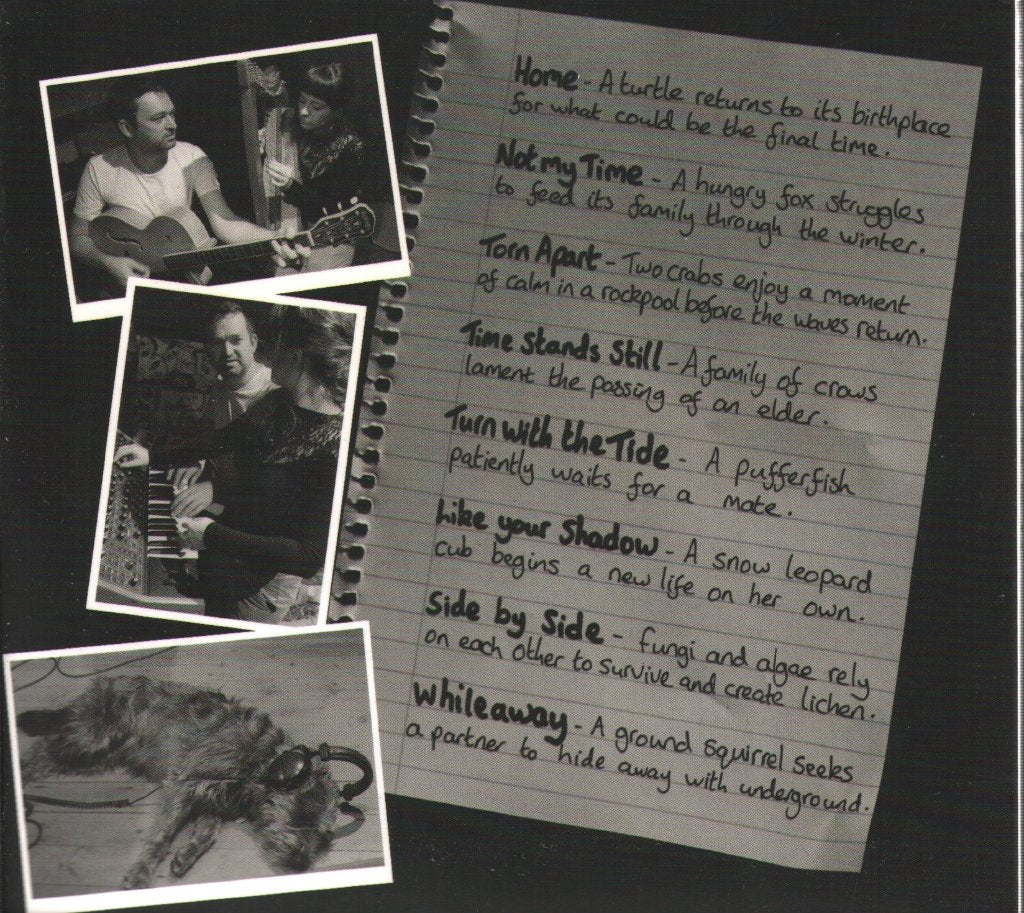 Home - A turtle returns to its birthplace
for what could be the final time.
Not my Time - A hungry fox struggles
to feed its family through the winter.
Torn Apart - Two crabs enjoy a moment
of calm in a rockpool before the waves return.
Time Stands Still - A family of crows
lament the passing of an elder.
Turn with the Tide - A pufferfish
patiently waits for a mate.
Like your Shadow - A snow leopard
cub begins a new life on her own.
Side by Side - fungi and algae rely
on each other to survive and create lichen.
While away - A ground squirrel seeks
a partner to hide away with underground.